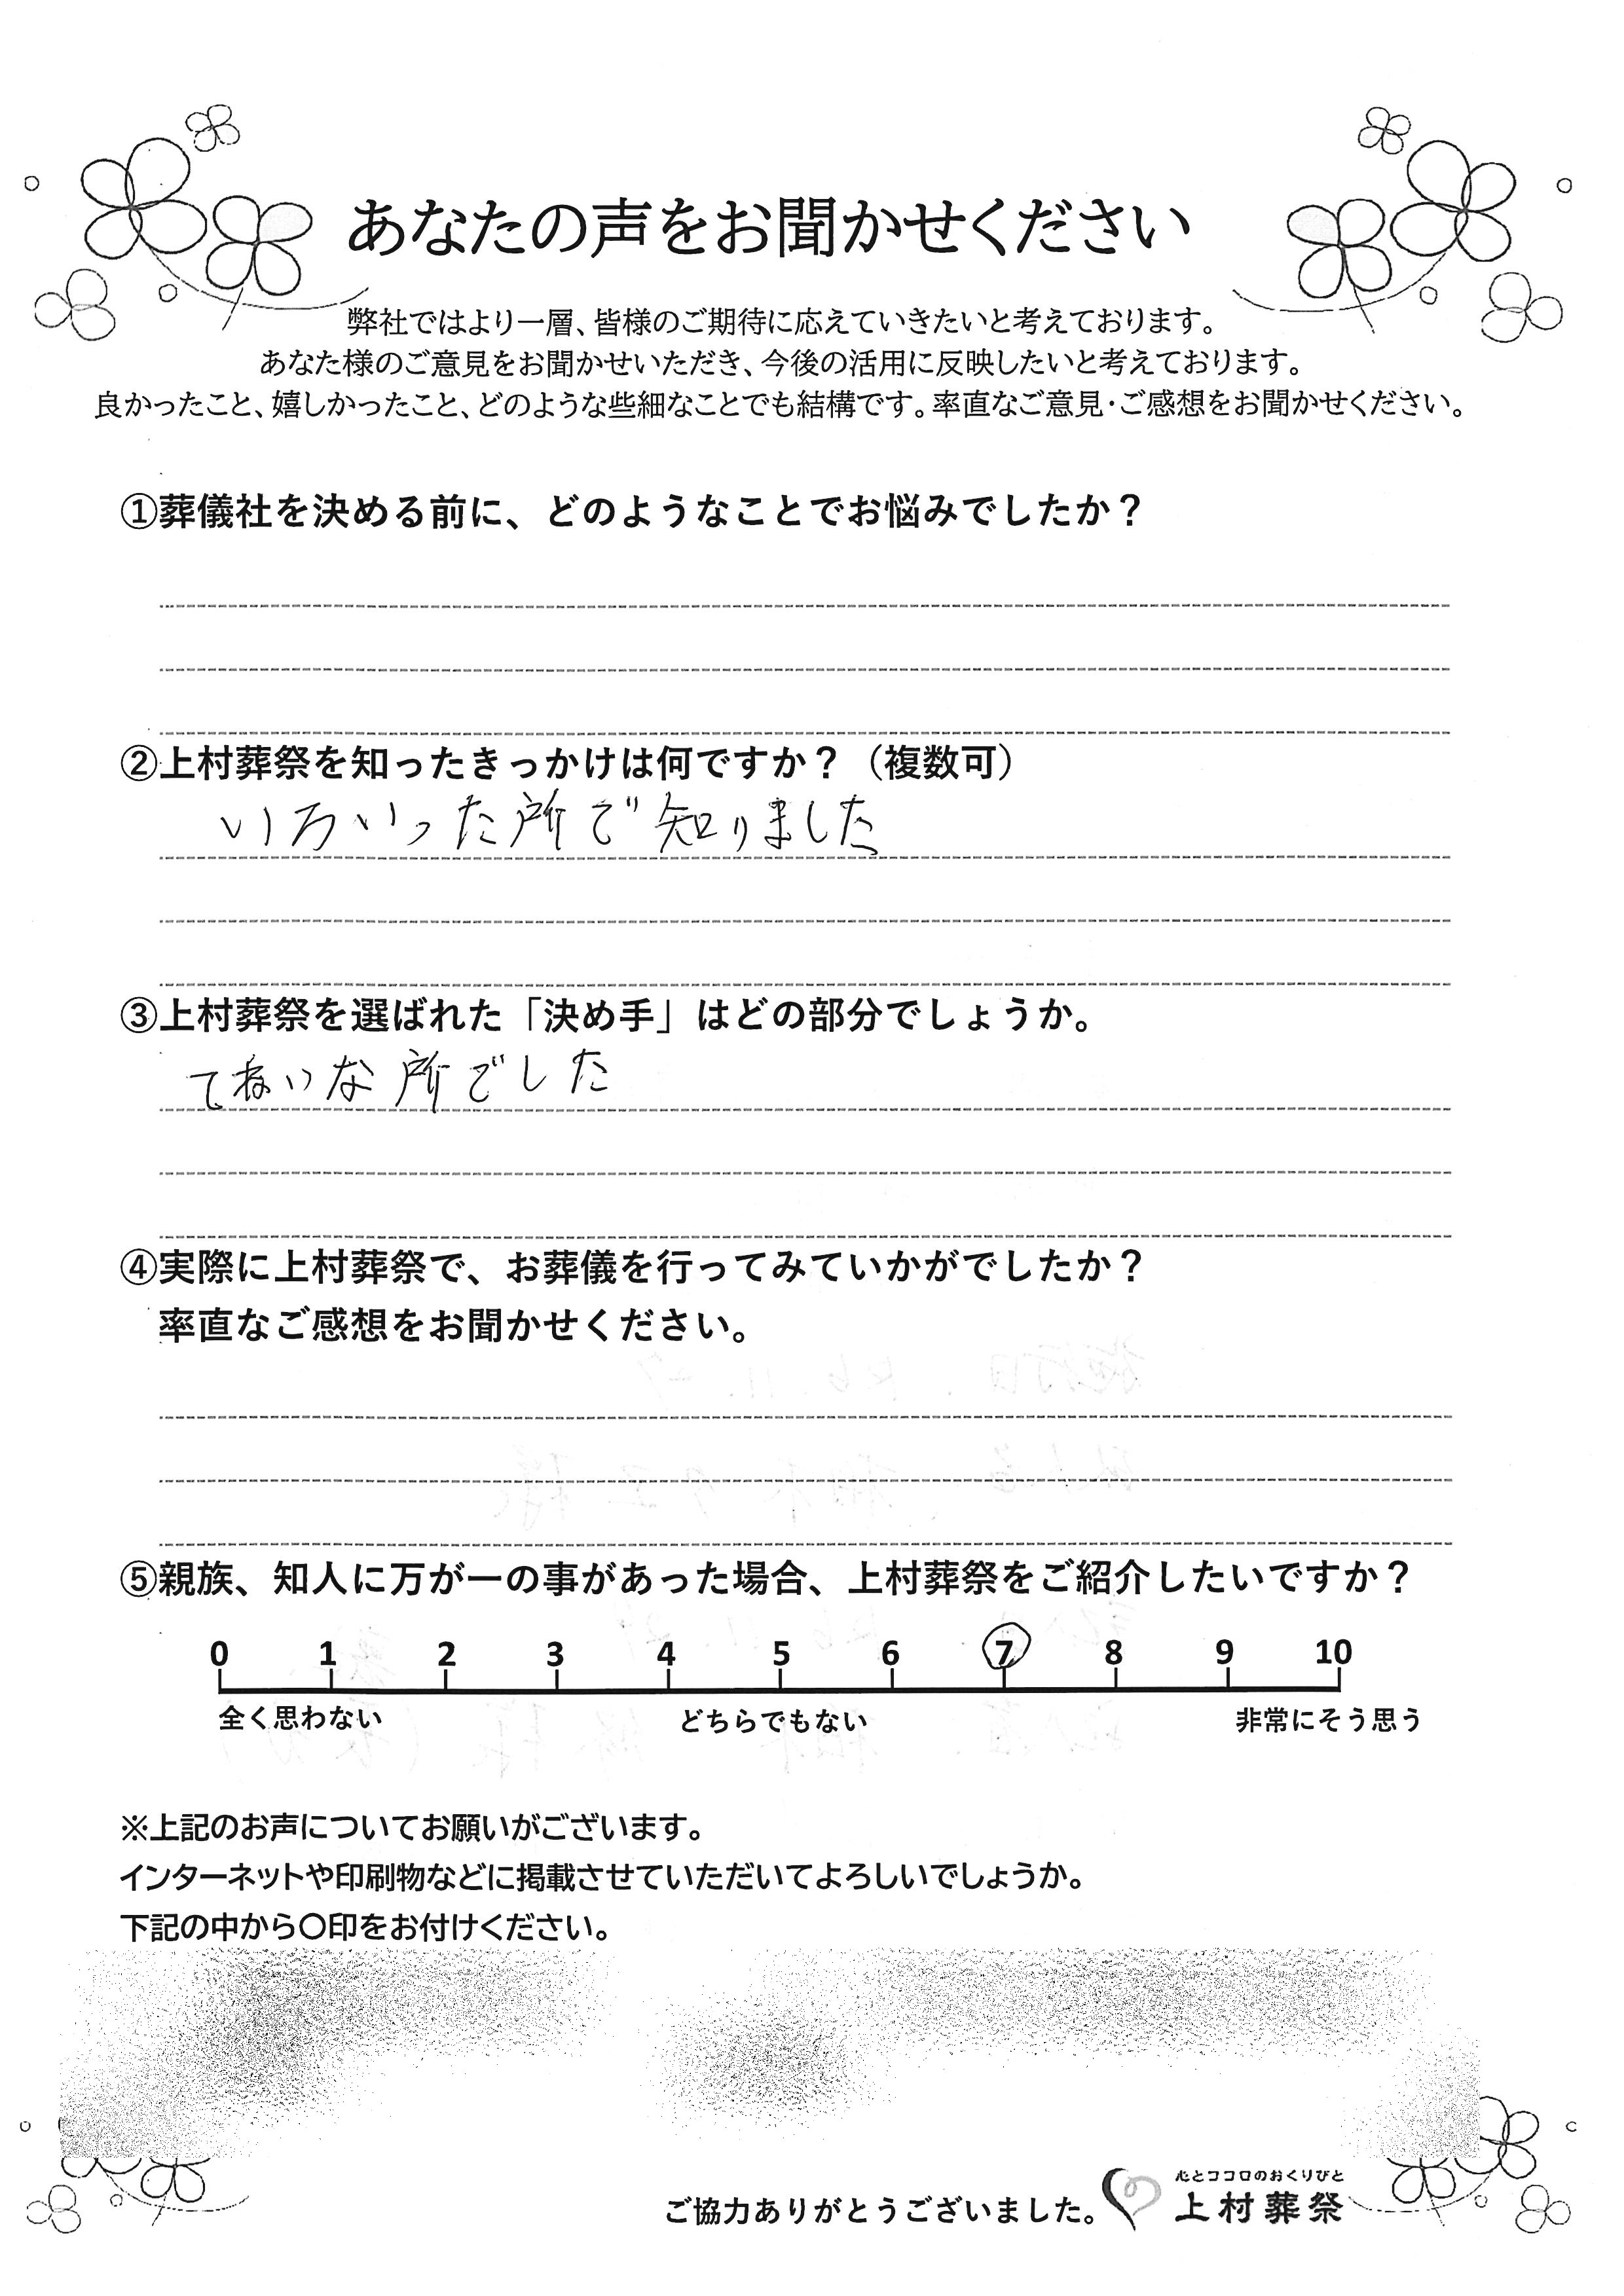 あなたの声をお聞かせください
弊社ではより一層、皆様のご期待に応えていきたいと考えております。
あなた様のご意見をお聞かせいただき、今後の活用に反映したいと考えております。
良かったこと、嬉しかったこと、どのような些細なことでも結構です。率直なご意見・ご感想をお聞かせください。
①葬儀社を決める前に、どのようなことでお悩みでしたか？
②上村葬祭を知ったきっかけは何ですか？（複数可）
いろいった所で知りました
③上村葬祭を選ばれた「決め手」はどの部分でしょうか。
てねいな所でした
④実際に上村葬祭で、お葬儀を行ってみていかがでしたか？
率直なご感想をお聞かせください。
⑤親族、知人に万が一の事があった場合、上村葬祭をご紹介したいですか？
0 1 2 3 4 5 6 7 8 9 10
全く思わない どちらでもない 非常にそう思う
※上記のお声についてお願いがございます。
インターネットや印刷物などに掲載させていただいてよろしいでしょうか。
下記の中から〇印をお付けください。
心とココロのおくりびと
ご協力ありがとうございました。 上村葬祭